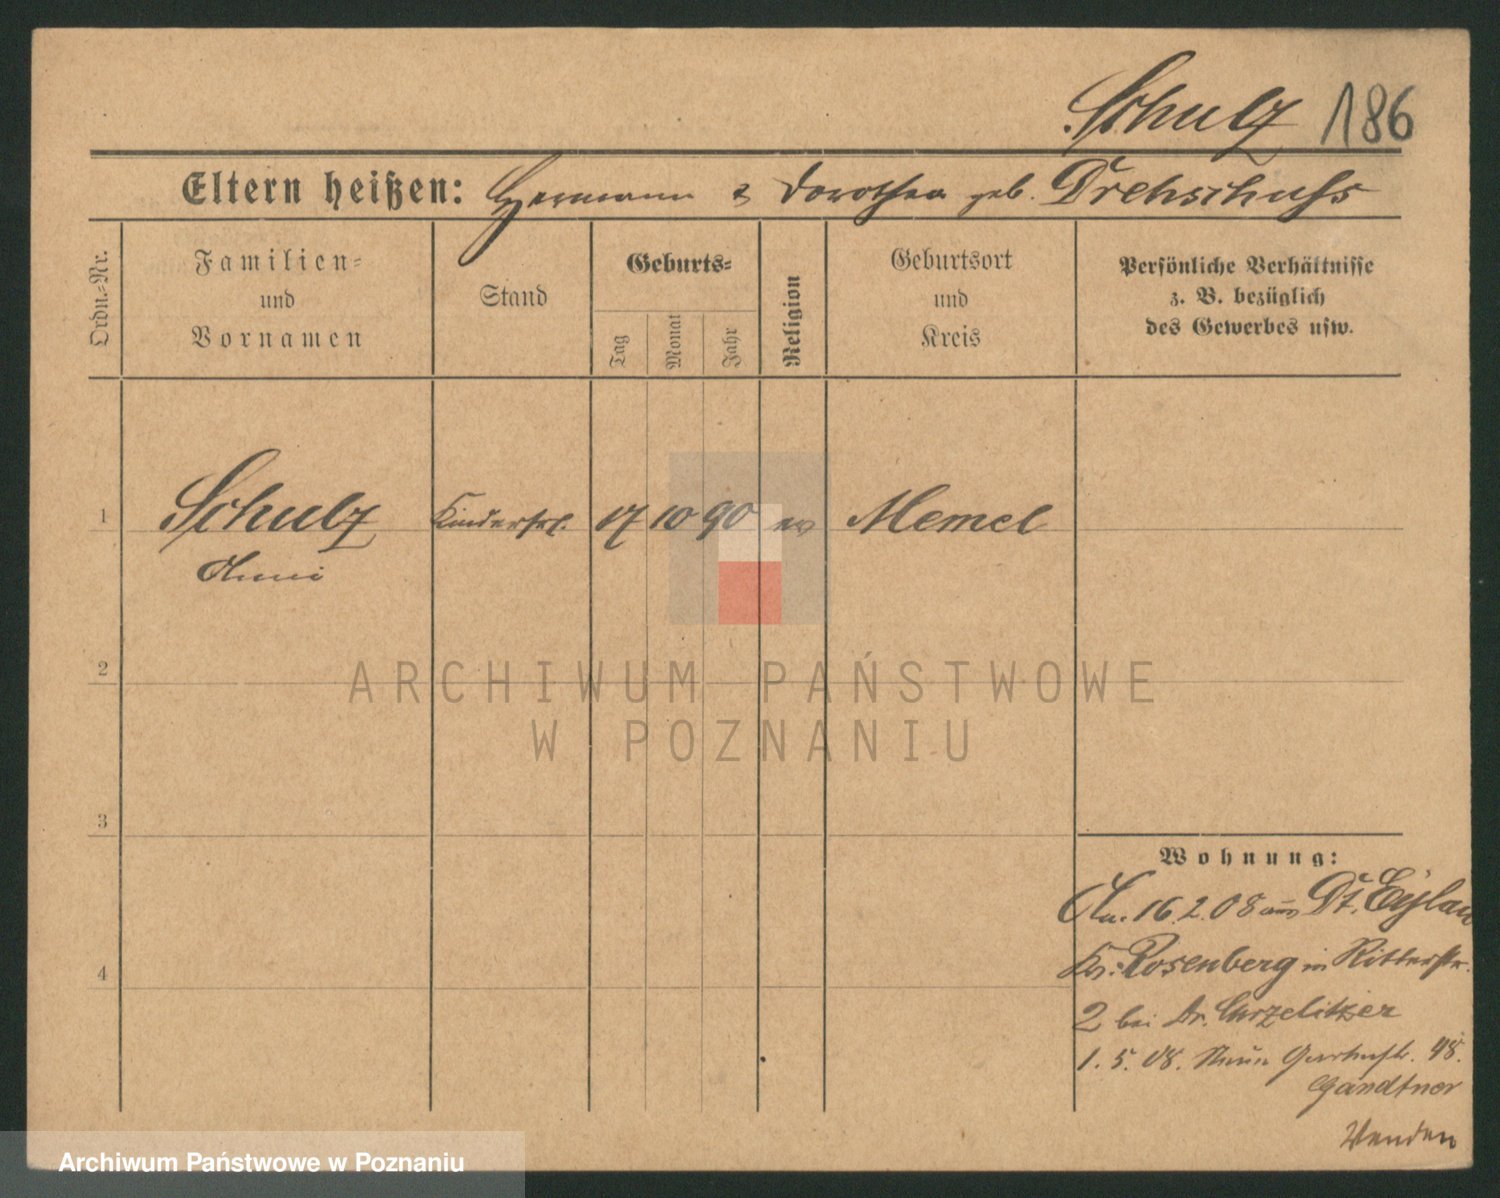 Schulz 186
Eltern heißen: Hermann & Dorothea geb. Drehschuhs
Ordn.-Nr.
Familien-
und
Vornamen
Stand
Geburts-
Tag
Monat
Jahr
Religion
Geburtsort
und
Kreis
Persönliche Verhältnisse
z. B. bezüglich
des Gewerbes usw.
1 Schulz Kinderfrl. 17 10 90 ev Memel
Anni
2
3
4
Wohnung:
An. 16.2.08 aus Dt. Eylau
Kr. Rosenberg in Ritterstr.
2 bei Dr. Curzelitzer
1.5.08. 48.
Gandtner
Wenden
ARCHIWUM PAŃSTWOWE
W POZNANIU
Archiwum Państwowe w Poznaniu